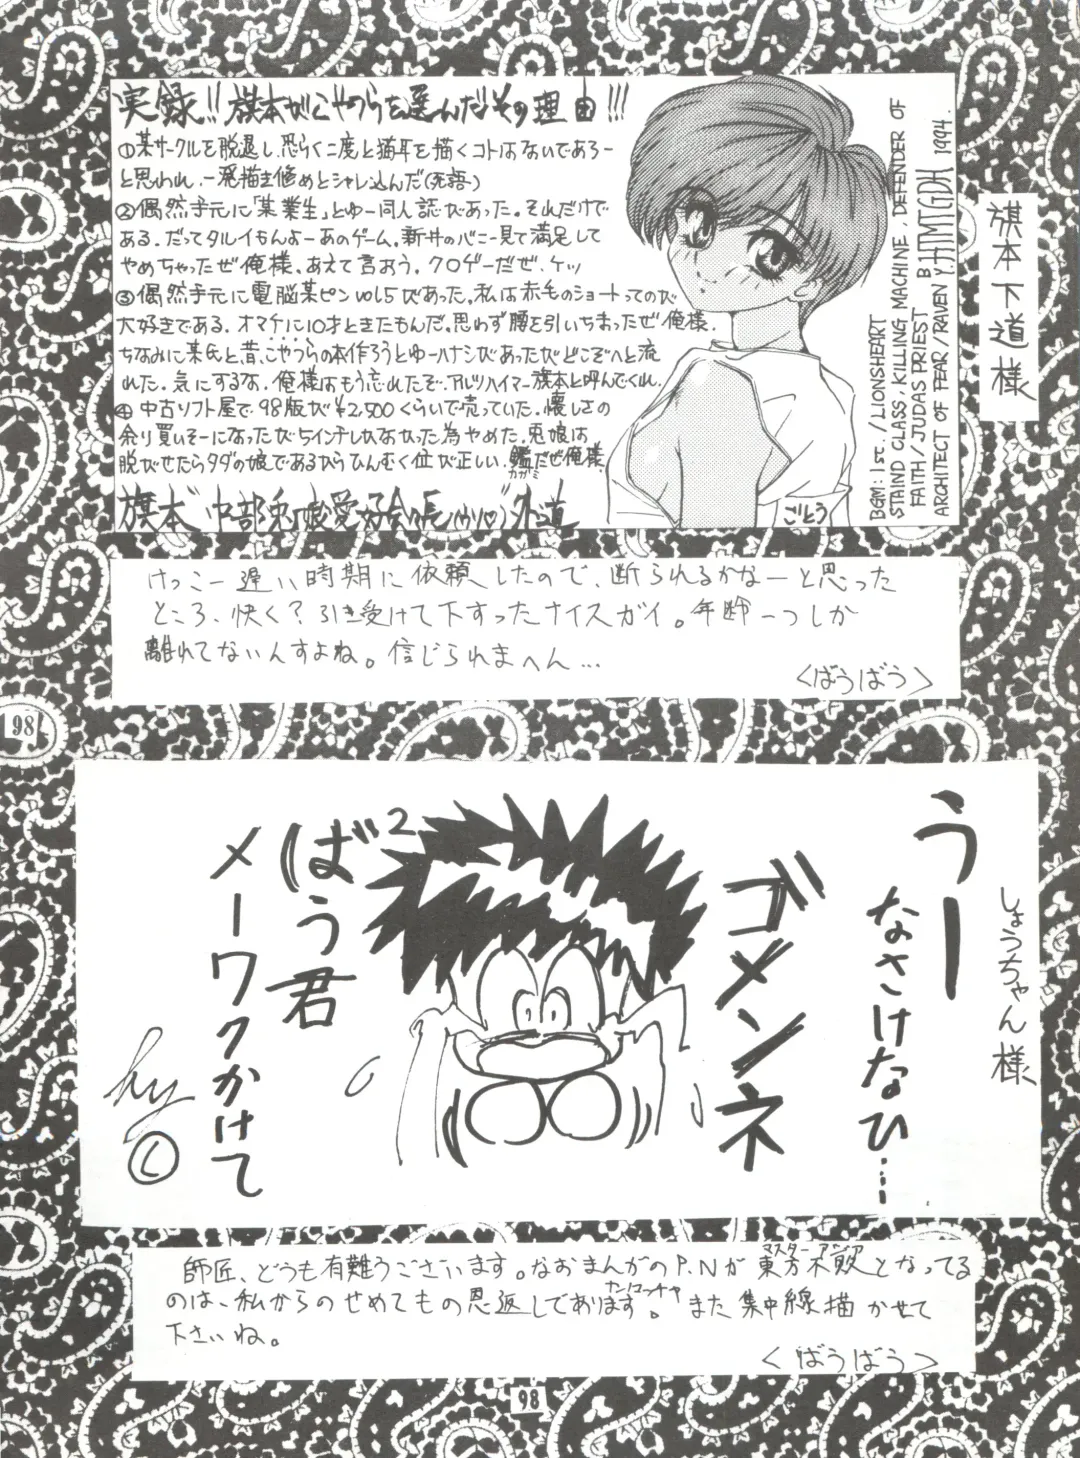 実録!! 旗本がこやつらを選んだその理由!!!
①某サークルを脱退し、恐らく二度と猫耳を描くコトはないであろー
と思われ、一発描き修めとシャレ込んだ(死語)
②偶然手元に「某業生」とゆー同人誌があった。それだけで
ある。だってタルイもんよーあのゲーム。新井のバニー見て満足して
やめちゃったぜ俺様。あえて言おう。クロゲーだぜ、ケッ
③偶然手元に電脳某ピンvol5があった。私は赤毛のショートってのが
大好きである。オマケに10才ときたもんだ。思わず腰を引いちまったぜ俺様。
ちなみに某氏と、昔、こやつらの本作ろうとゆーハナシがあったがどこぞへと流
れた。気にするな。俺様はもう忘れたぞ。アルツハイマー旗本と呼んでくれ。
④中古ソフト屋で98版が¥2,500くらいで売っていた。懐しさの
余り買いそーになったが5インチしかなかった為やめた。兎娘は
脱がせたらタダの娘であるからひんむく位が正しい。鑑だぜ俺様
カガミ
旗本 中部兎娘愛好会々長 外道
ごとう
BGM: 1st. / LIONSHEART
STAIND CLASS, KILLING MACHINE, DEFENDER OF
FAITH / JUDAS PRIEST
ARCHITECT OF FEAR / RAVEN
1994.
旗本下道様
けっこー遅い時期に依頼したので、断られるかなーと思った
ところ、快く?引き受けて下すったナイスガイ。年齢一つしか
離れてないんすよね。信じられまへん…
<ばうばう>
98
しょうちゃん様
うー
なさけなひ…
ゴメンネ
ばう²君
メーワクかけて
hy
師匠、どうも有難うございます。なおまんがのP.Nが東方不敗となってる
マスターアジア
のは、私からのせめてもの恩返しであります。また集中線描かせて
下さいね。
<ばうばう>
98